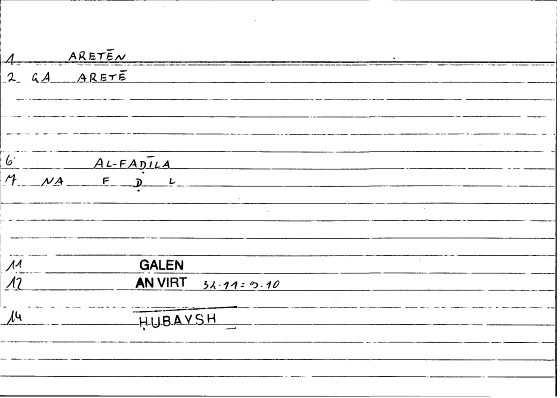 1 ARETĒN
2 GA ARETĒ
6 AL-FAḌĪLA
7 NA F Ḍ L
11 GALEN
12 AN VIRT 32.11 = 9.10
14 ḤUBAYSH